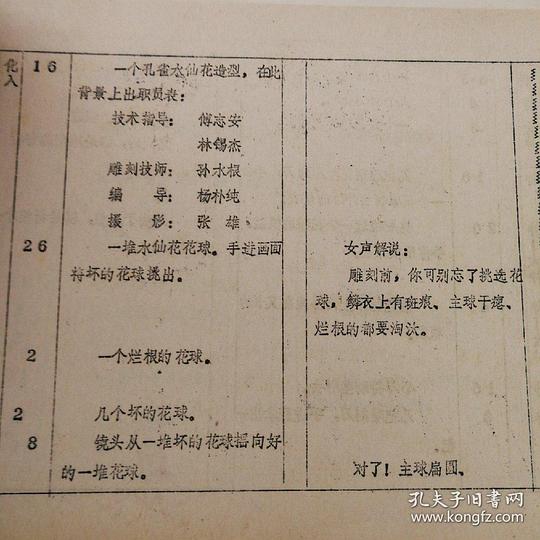 化入 16 一个孔雀水仙花造型，在此
背景上出职员表：
技术指导： 傅志安
林锡杰
雕刻技师： 孙水根
编　导： 杨朴纯
摄　影： 张　雄
26 一堆水仙花花球。手进画面 女声解说：
将坏的花球拨出。 雕刻前，你可别忘了挑选花
球，鳞衣上有斑痕、主球干瘪、
烂根的都要淘汰。
2 一个烂根的花球。
2 几个坏的花球。
8 镜头从一堆坏的花球摇向好
的一堆花球。 对了！主球扁圆、
孔夫子旧书网
www.kongfz.com